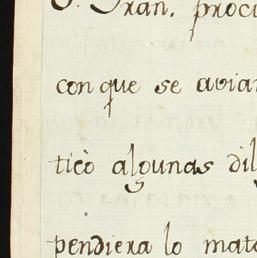 S. Fran. procu
con que se avian
ticò algunas dil
pendiera lo mato